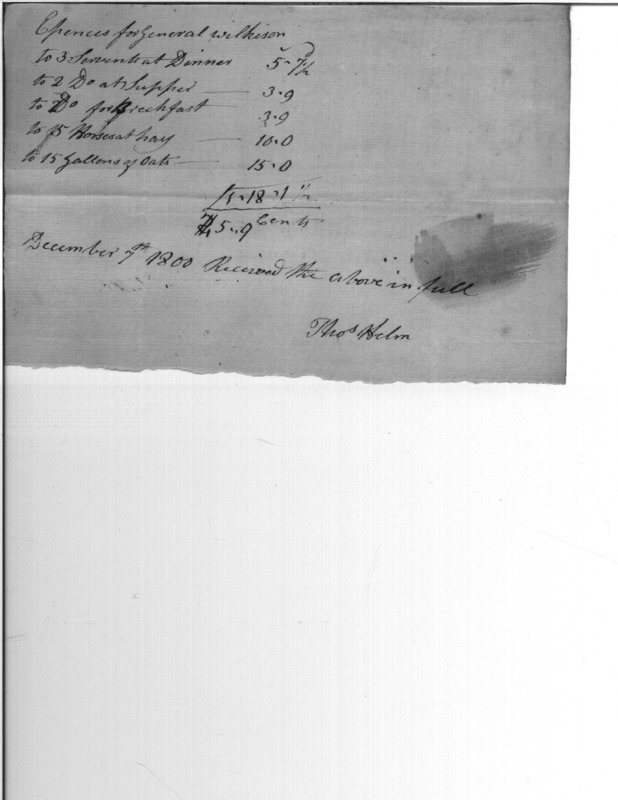 Epences for General wilkison
to 3 Servents at Dinner 5 - 7½
to 2 Do at Supper — 3 - 9
to 2 Do for Breckfast 3 - 9
to 15 Horses at hay — 10 - 0
to 15 Gallons of Oats — 15 - 0
£1 - 18 - 1 ½
5 - 9 Cents
December 7th 1800 Received the above in full
Thos Helm